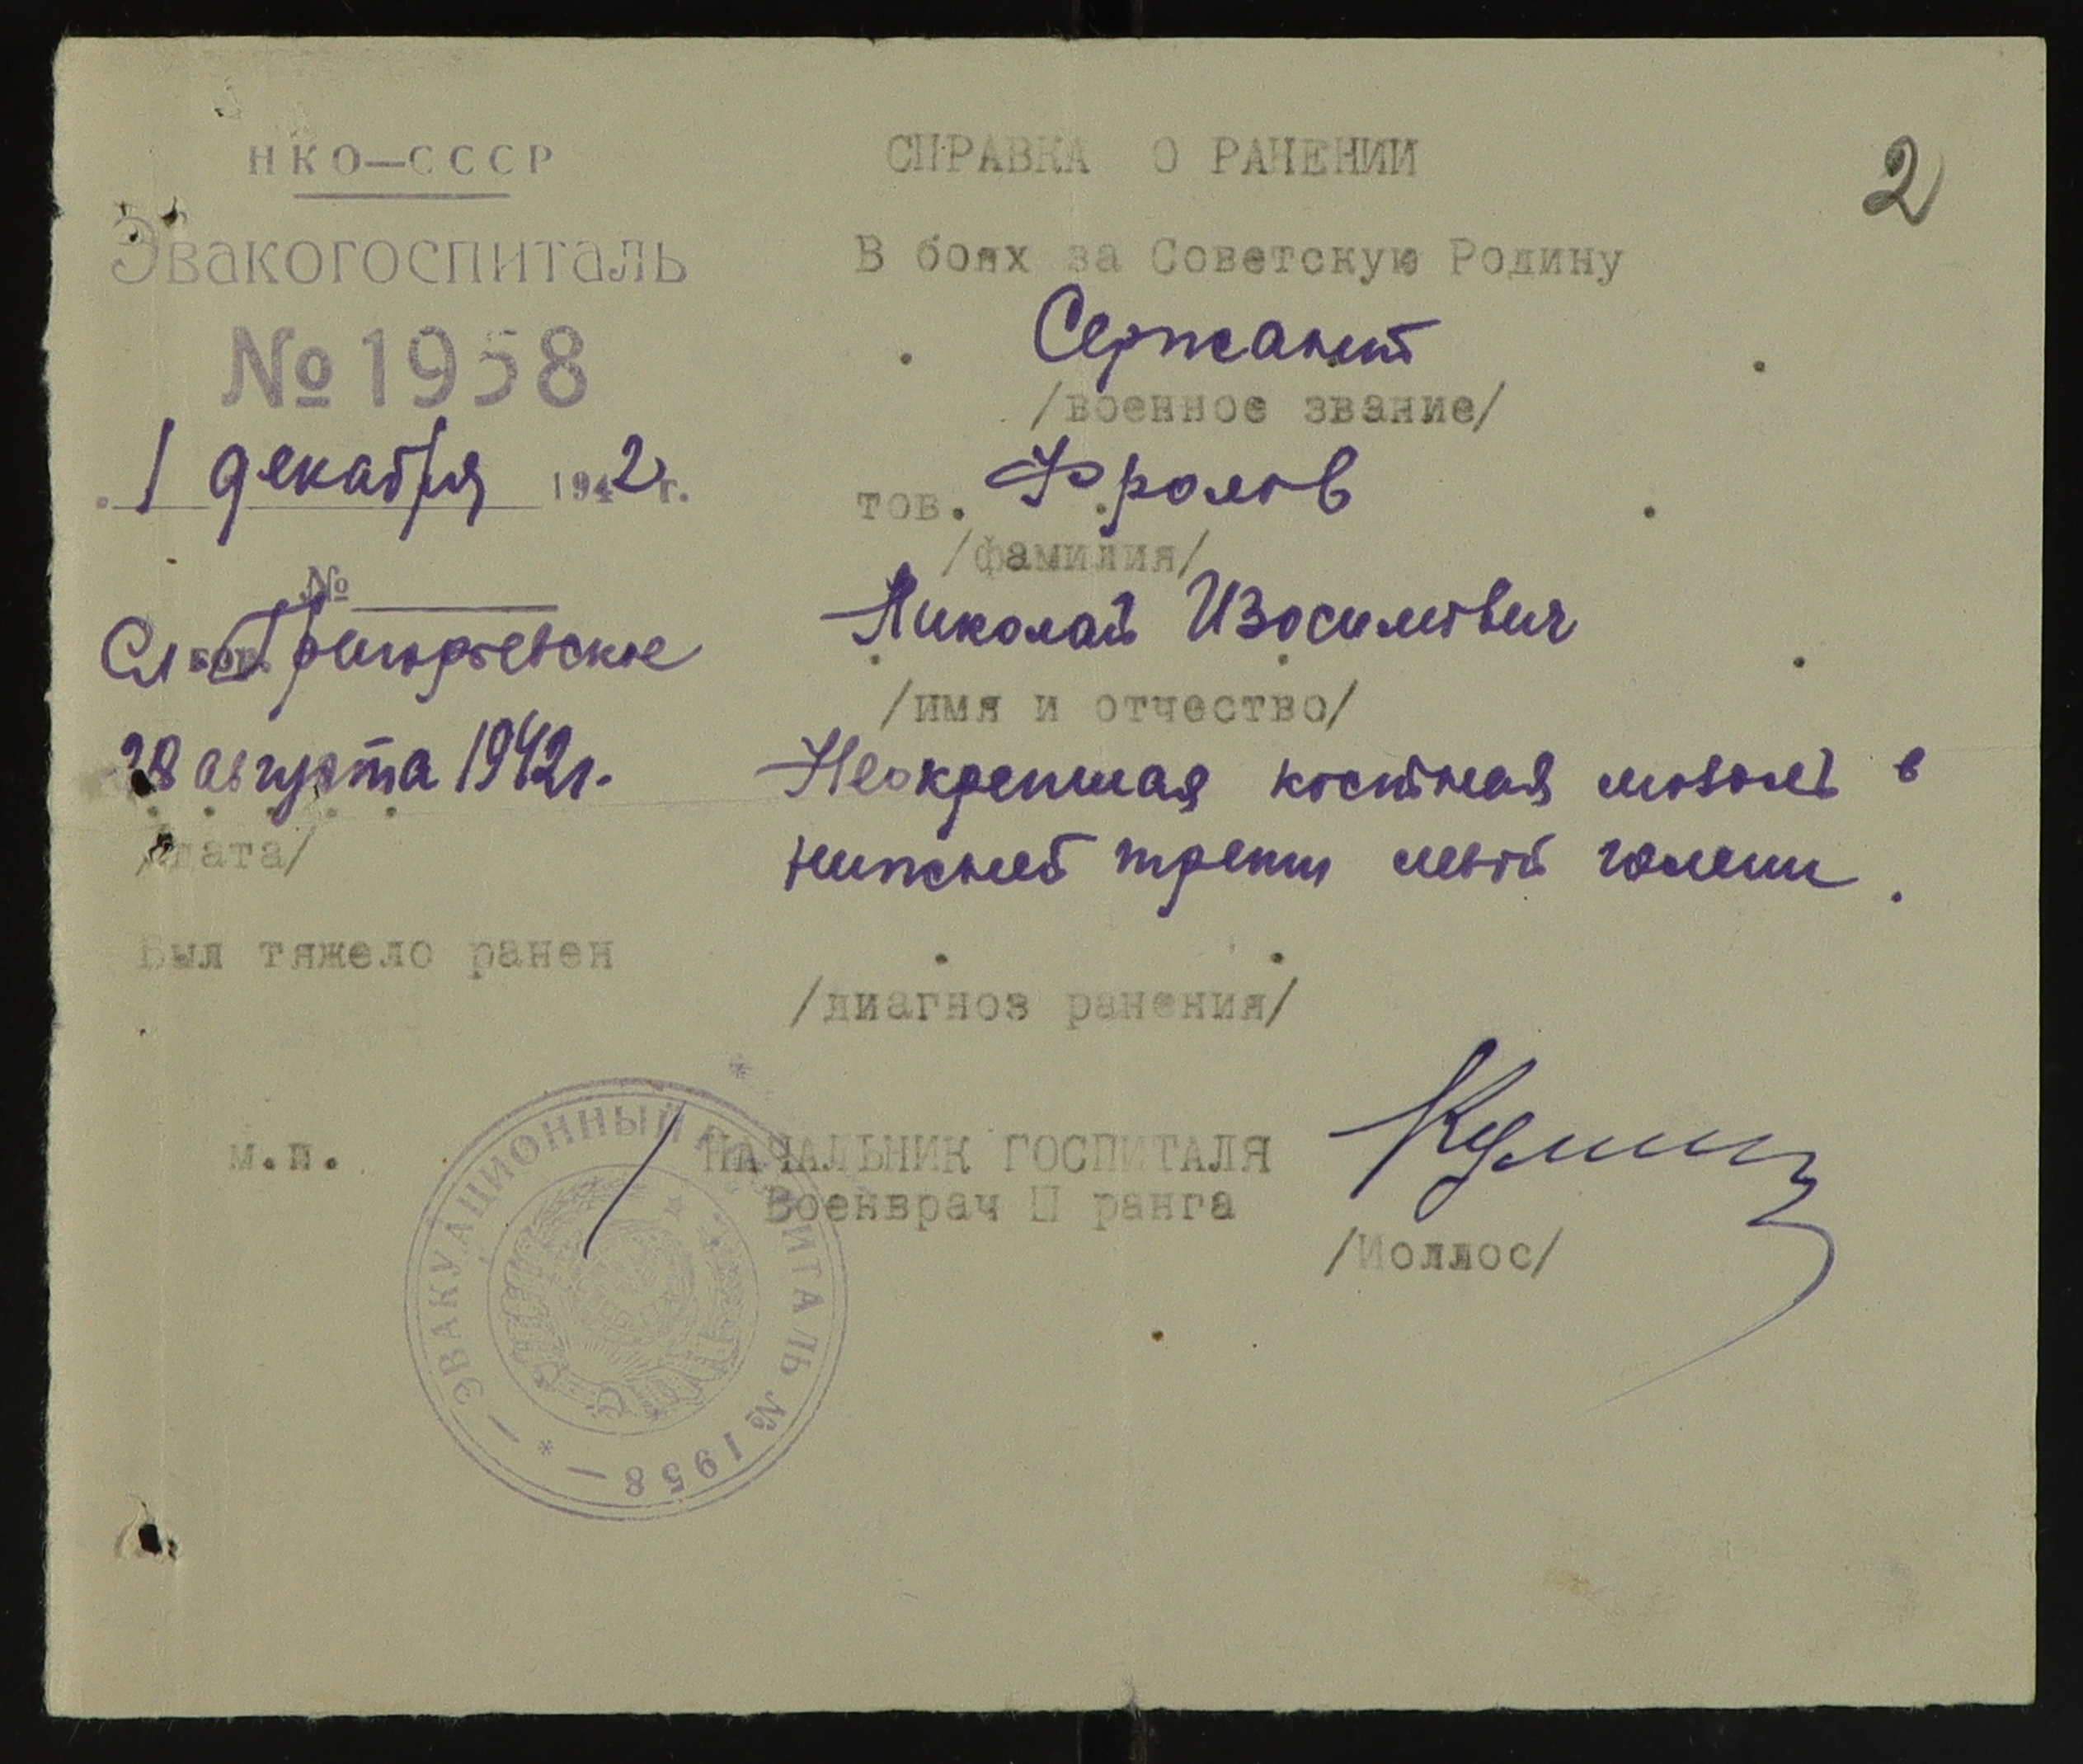 НКО—СССР
Эвакогоспиталь
№ 1958
1 декабря 1942 г.
№
Григорьевское
28 августа 1942 г.
/дата/
Был тяжело ранен
м.п.
2
СПРАВКА О РАНЕНИИ
В боях за Советскую Родину
Сержант
/военное звание/
тов. Фролов
/фамилия/
Николай Изосимович
/имя и отчество/
Неокрепшая костная мозоль в
нижней трети левой голени.
/диагноз ранения/
НАЧАЛЬНИК ГОСПИТАЛЯ
Военврач II ранга
/Иоллос/
— ЭВАКУАЦИОННЫЙ ГОСПИТАЛЬ № 1958 — *